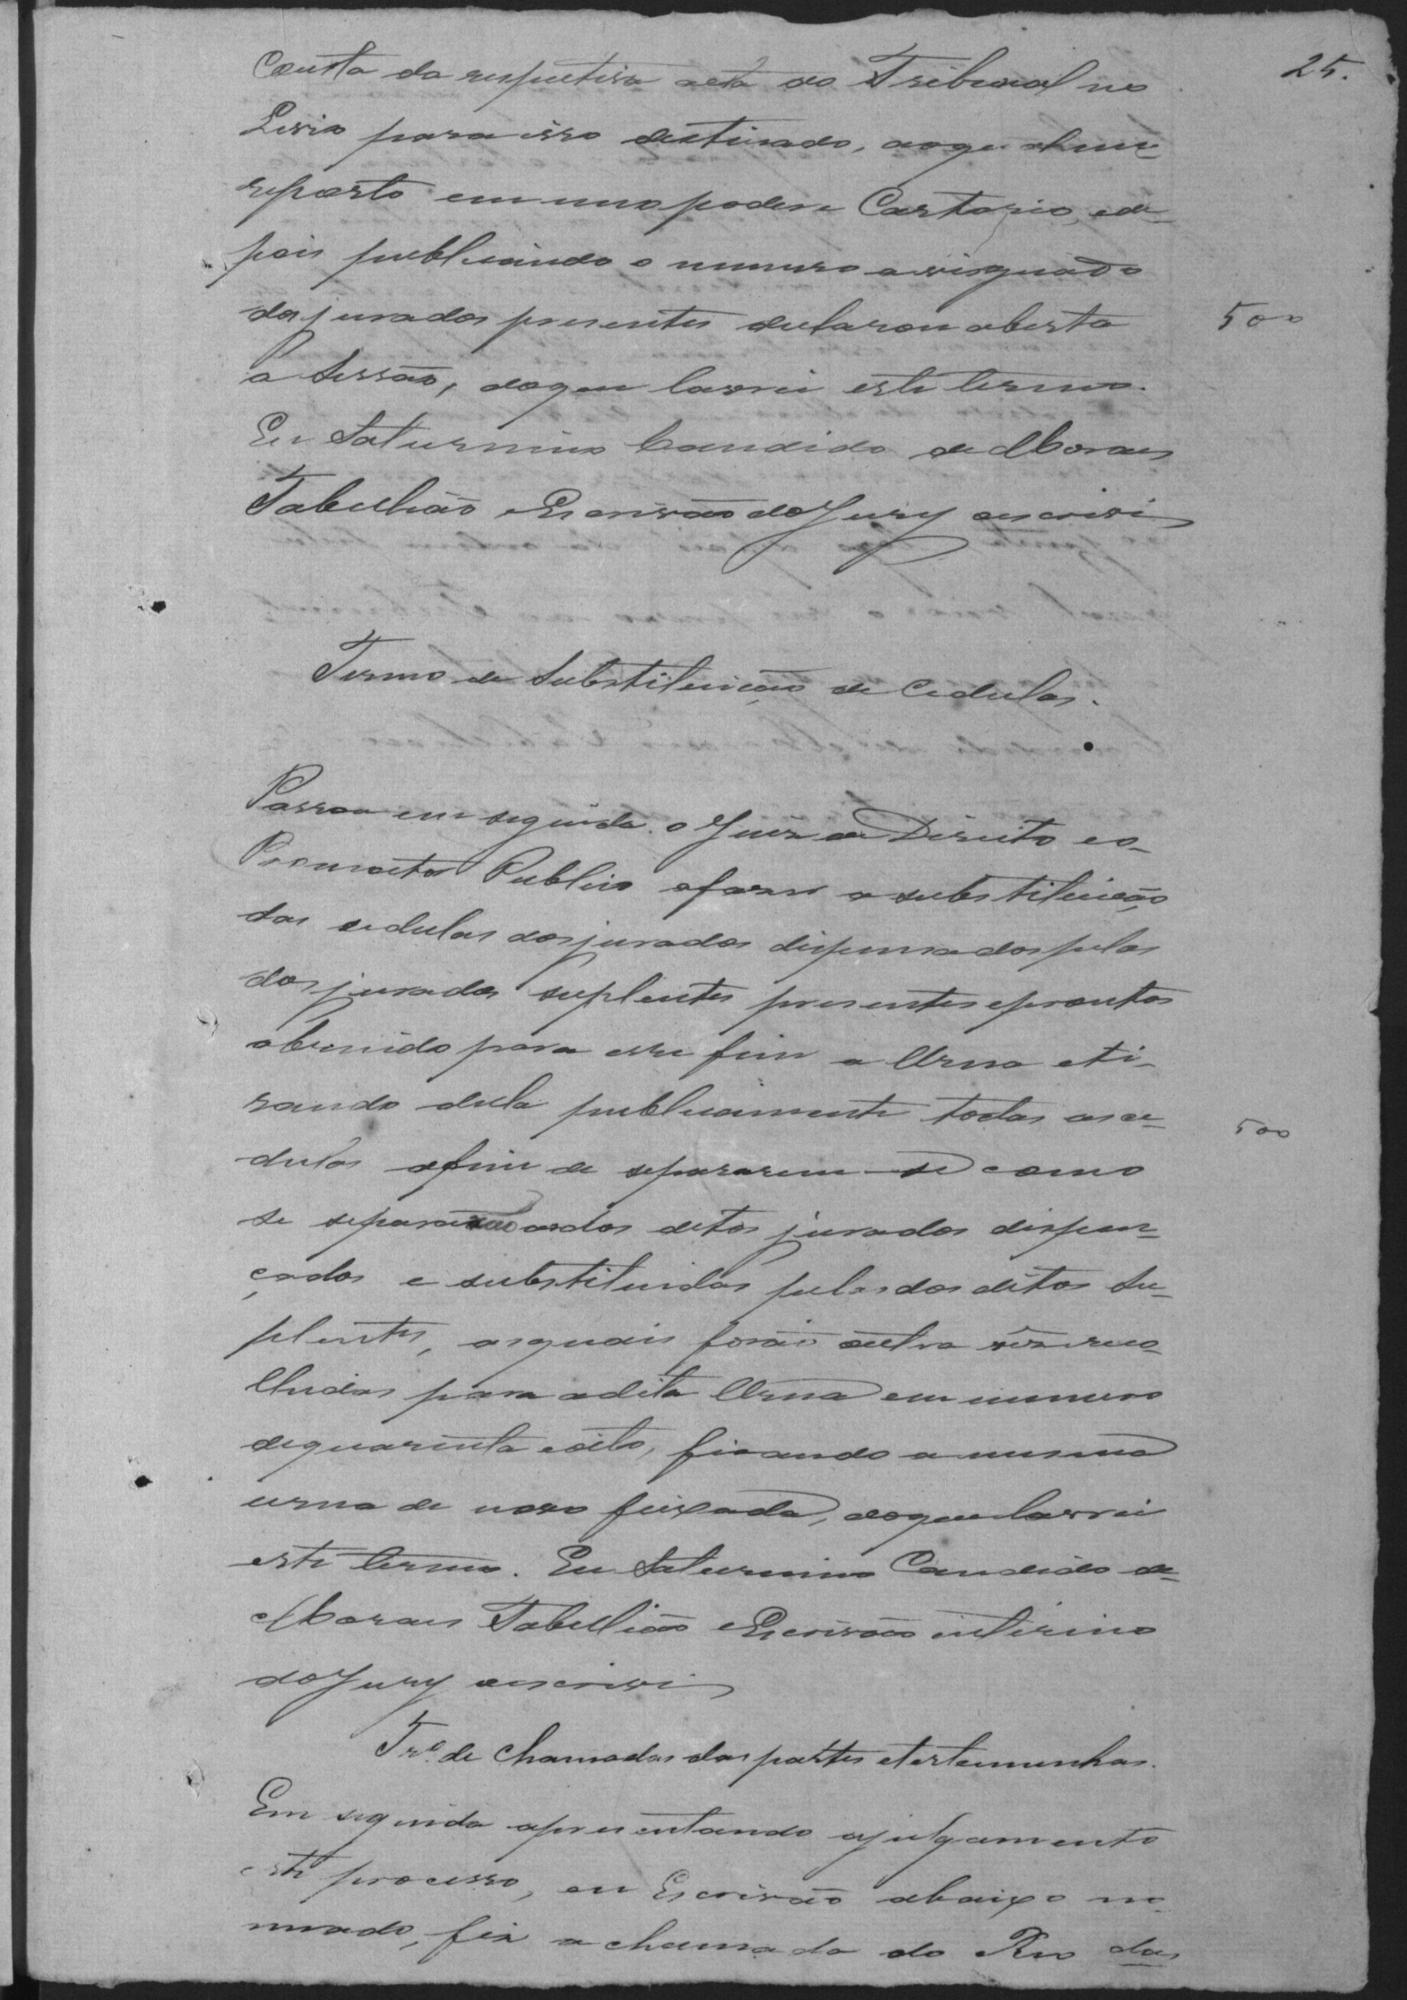 25.
Consta da respectiva acta do Tribunal no
Livro para isso destinado, aoqual me
reporto em meo poder e Cartorio, ede-
pois publicando o numero averiguado
dos jurados presentes declarou aberta
a Sessão, doque lavrei este termo.
Eu Saturnino Candido de Moraes
Tabellião e Escrivão do Jury o escrivi
500
Termo de Substituição de Cedulas.
Passou em seguida o Juiz de Direito eo-
Promotor Publico afazer a substituição
das cedulas dos jurados dispensados pelas
dos jurados suplentes presentes eprontos
abrindo para esse fim a Urna eti-
rando della publicamente todas as ce-
500
dulas afim de separarem-se como
se separarão as dos ditos jurados dispen-
çados e substituidas pelas dos ditos Su-
plentes, as quais forão outra vez reco-
lhidas para adita Urna em numero
de quarenta e oito, ficando a mesma
urna de novo feixada, doque lavrei
este termo. Eu Saturnino Candido de
Moraes Tabellião e Escrivão interino
do Jury o escrivi
Trº. de chamadas das partes etestemunhas.
Em seguida apresentando ajulgamento
este processo, eu Escrivão abaixo no-
miado, fiz a chamada do Reo das